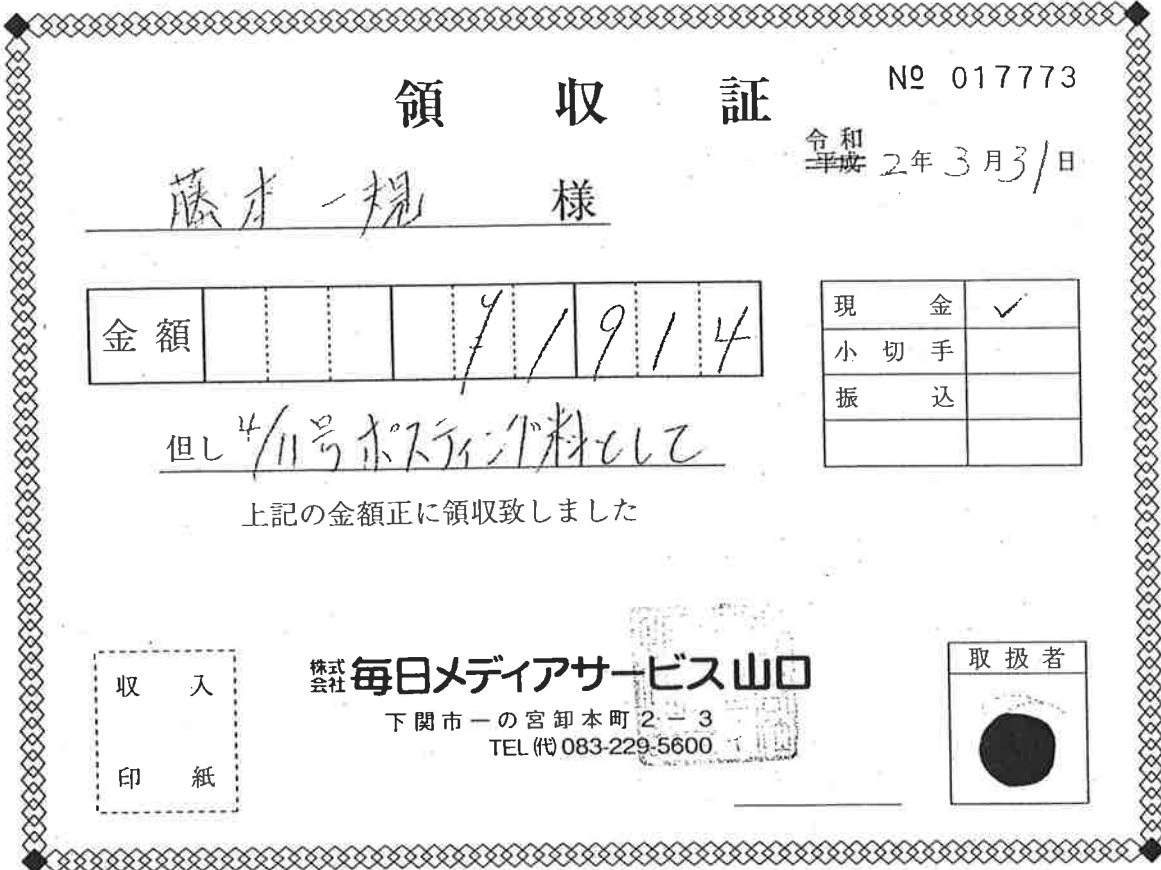 領収証
№ 017773
令和
平成 2年3月31日
藤本一規 様
金額 ¥1914
現金 ✓
小切手
振込
但し 4/11号ポスティング料として
上記の金額正に領収致しました
収入
印紙
株式会社 毎日メディアサービス山口
下関市一の宮卸本町2-3
TEL(代)083-229-5600
取扱者